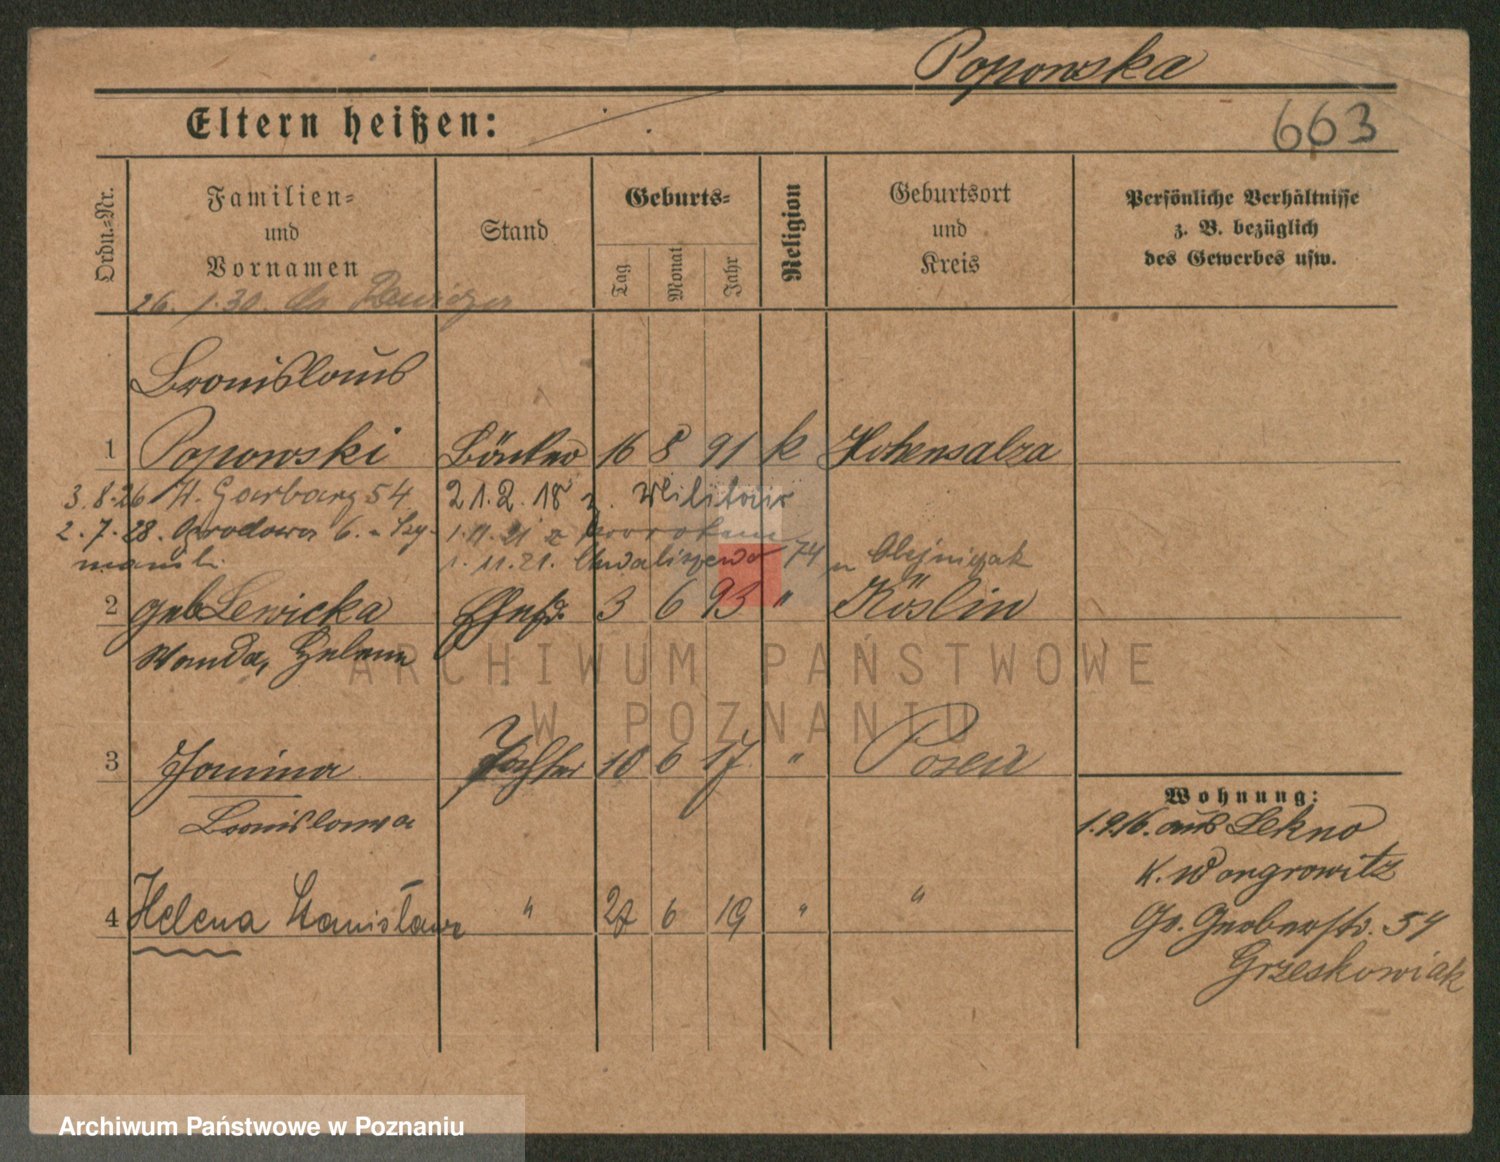 Popowska
Eltern heißen:
663
Ordn.-Nr.
Familien-
und
Vornamen
Stand
Geburts-
Tag
Monat
Jahr
Religion
Geburtsort
und
Kreis
Persönliche Verhältnisse
z. B. bezüglich
des Gewerbes usw.
26. 1. 30.
Bronislaus
1 Popowski Bäcker 16 8 91 k Hohensalza
3.8.26 H. Garbary 54 21.2.18 z. Militär
2.7.28. Ogrodowa 6. 1.11.21 z
1.11.21. Chwaliszewo 74 Olejniczak
2 geb Lewicka Ehefr. 3 6 93 " Köslin
Wanda, Helene
3 Janina Tochter 10 6 17 " Posen
Bronislawa
4 Helena Stanisława " 27 6 19 " "
Wohnung:
1.9.16. aus Lekno
K. Wongrowitz
Gr. Gerberstr. 54
Grzeskowiak
ARCHIWUM PAŃSTWOWE
W POZNANIU
Archiwum Państwowe w Poznaniu